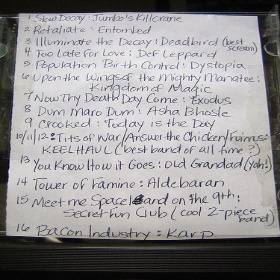 1 Slow Decay : Jumbo's Killcrane
2 Retaliate : Entombed
3 Illuminate the Decay : Deadbird (best scream)
4 Too Late for Love : Def Leppard
5 Population Birth Control : Dystopia
6 Upon the Wings of the Mighty Manatee :
Kingdom of Magic
7 Now Thy Death Day Come : Exodus
8 Dum Maro Dum : Asha Bhosle
9 Crooked : Today is the Day
10/11/12 : Tits of War/Answer the Chicken/
KEELHAUL ("best band of all time?)
13 You Know How it Goes : Old Grandad (Yah!)
14 Tower of Famine : Aldebaran
15 Meet me Spaceland on the 9th :
Secret Fun Club (cool 2-piece band)
16 Bacon Industry : Karp